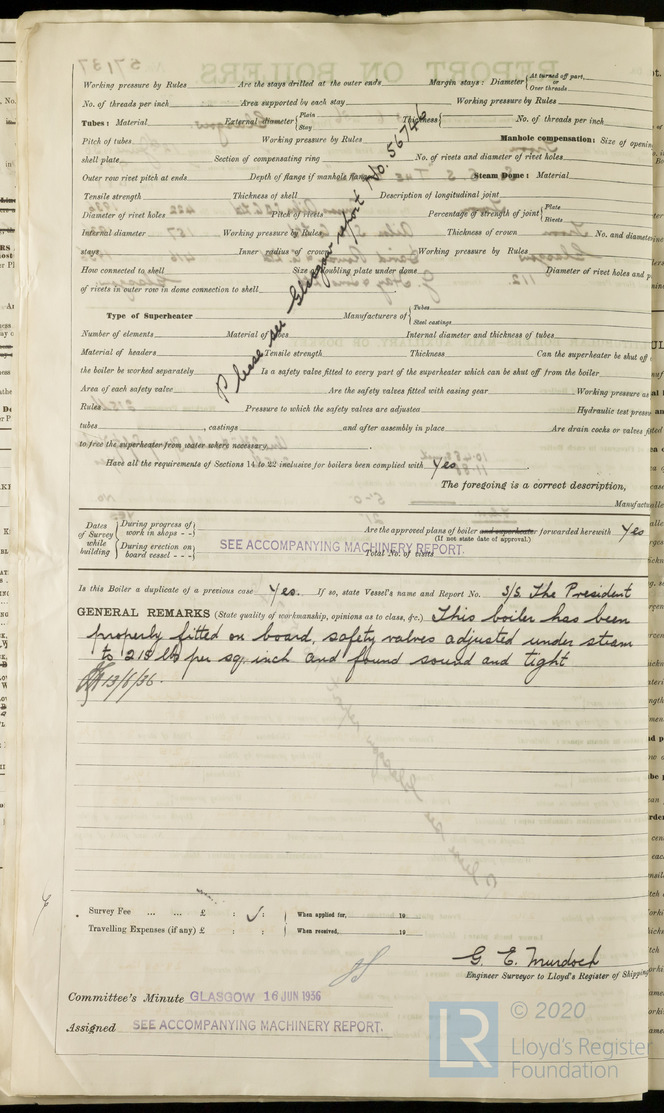 57137
REPORT ON BOILERS
Working pressure by Rules Are the stays drilled at the outer ends Margin stays: Diameter { At turned off part, or Over threads
No. of threads per inch Area supported by each stay Working pressure by Rules
Tubes: Material External diameter { Plain Stay Thickness { No. of threads per inch
Pitch of tubes Working pressure by Rules Manhole compensation: Size of opening
shell plate Section of compensating ring No. of rivets and diameter of rivet holes
Outer row rivet pitch at ends Depth of flange if manhole flanged Steam Dome: Material
Tensile strength Thickness of shell Description of longitudinal joint
Diameter of rivet holes Pitch of rivets Percentage of strength of joint { Plate Rivets
Internal diameter Working pressure by Rules Thickness of crown No. and diameter
stays Inner radius of crown Working pressure by Rules
How connected to shell Size of doubling plate under dome Diameter of rivet holes and p
of rivets in outer row in dome connection to shell
Please see Glasgow report No. 56746
Type of Superheater Manufacturers of { Tubes Steel castings
Number of elements Material of tubes Internal diameter and thickness of tubes
Material of headers Tensile strength Thickness Can the superheater be shut off
the boiler be worked separately Is a safety valve fitted to every part of the superheater which can be shut off from the boiler
Area of each safety valve Are the safety valves fitted with easing gear Working pressure as
Rules Pressure to which the safety valves are adjusted Hydraulic test pressure
tubes , castings and after assembly in place Are drain cocks or valves fitted
to free the superheater from water where necessary
Have all the requirements of Sections 14 to 22 inclusive for boilers been complied with Yes
The foregoing is a correct description,
Manufactu
Dates of Survey while building { During progress of work in shops - - } { During erection on board vessel - - - } SEE ACCOMPANYING MACHINERY REPORT.
Are the approved plans of boiler and superheater forwarded herewith Yes
(If not state date of approval.)
Total No. of visits
Is this Boiler a duplicate of a previous case Yes. If so, state Vessel's name and Report No. S/S. The President
GENERAL REMARKS (State quality of workmanship, opinions as to class, &c.) This boiler has been
properly fitted on board, safety valves adjusted under steam
to 215 lbs per sq. inch and found sound and tight
13/6/36.
Survey Fee ... ... £ : ✓ : When applied for, 19
Travelling Expenses (if any) £ : : When received, 19
G. E. Murdoch
Engineer Surveyor to Lloyd's Register of Shipping
Committee's Minute GLASGOW 16 JUN 1936
Assigned SEE ACCOMPANYING MACHINERY REPORT.
LR © 2020
Lloyd's Register
Foundation